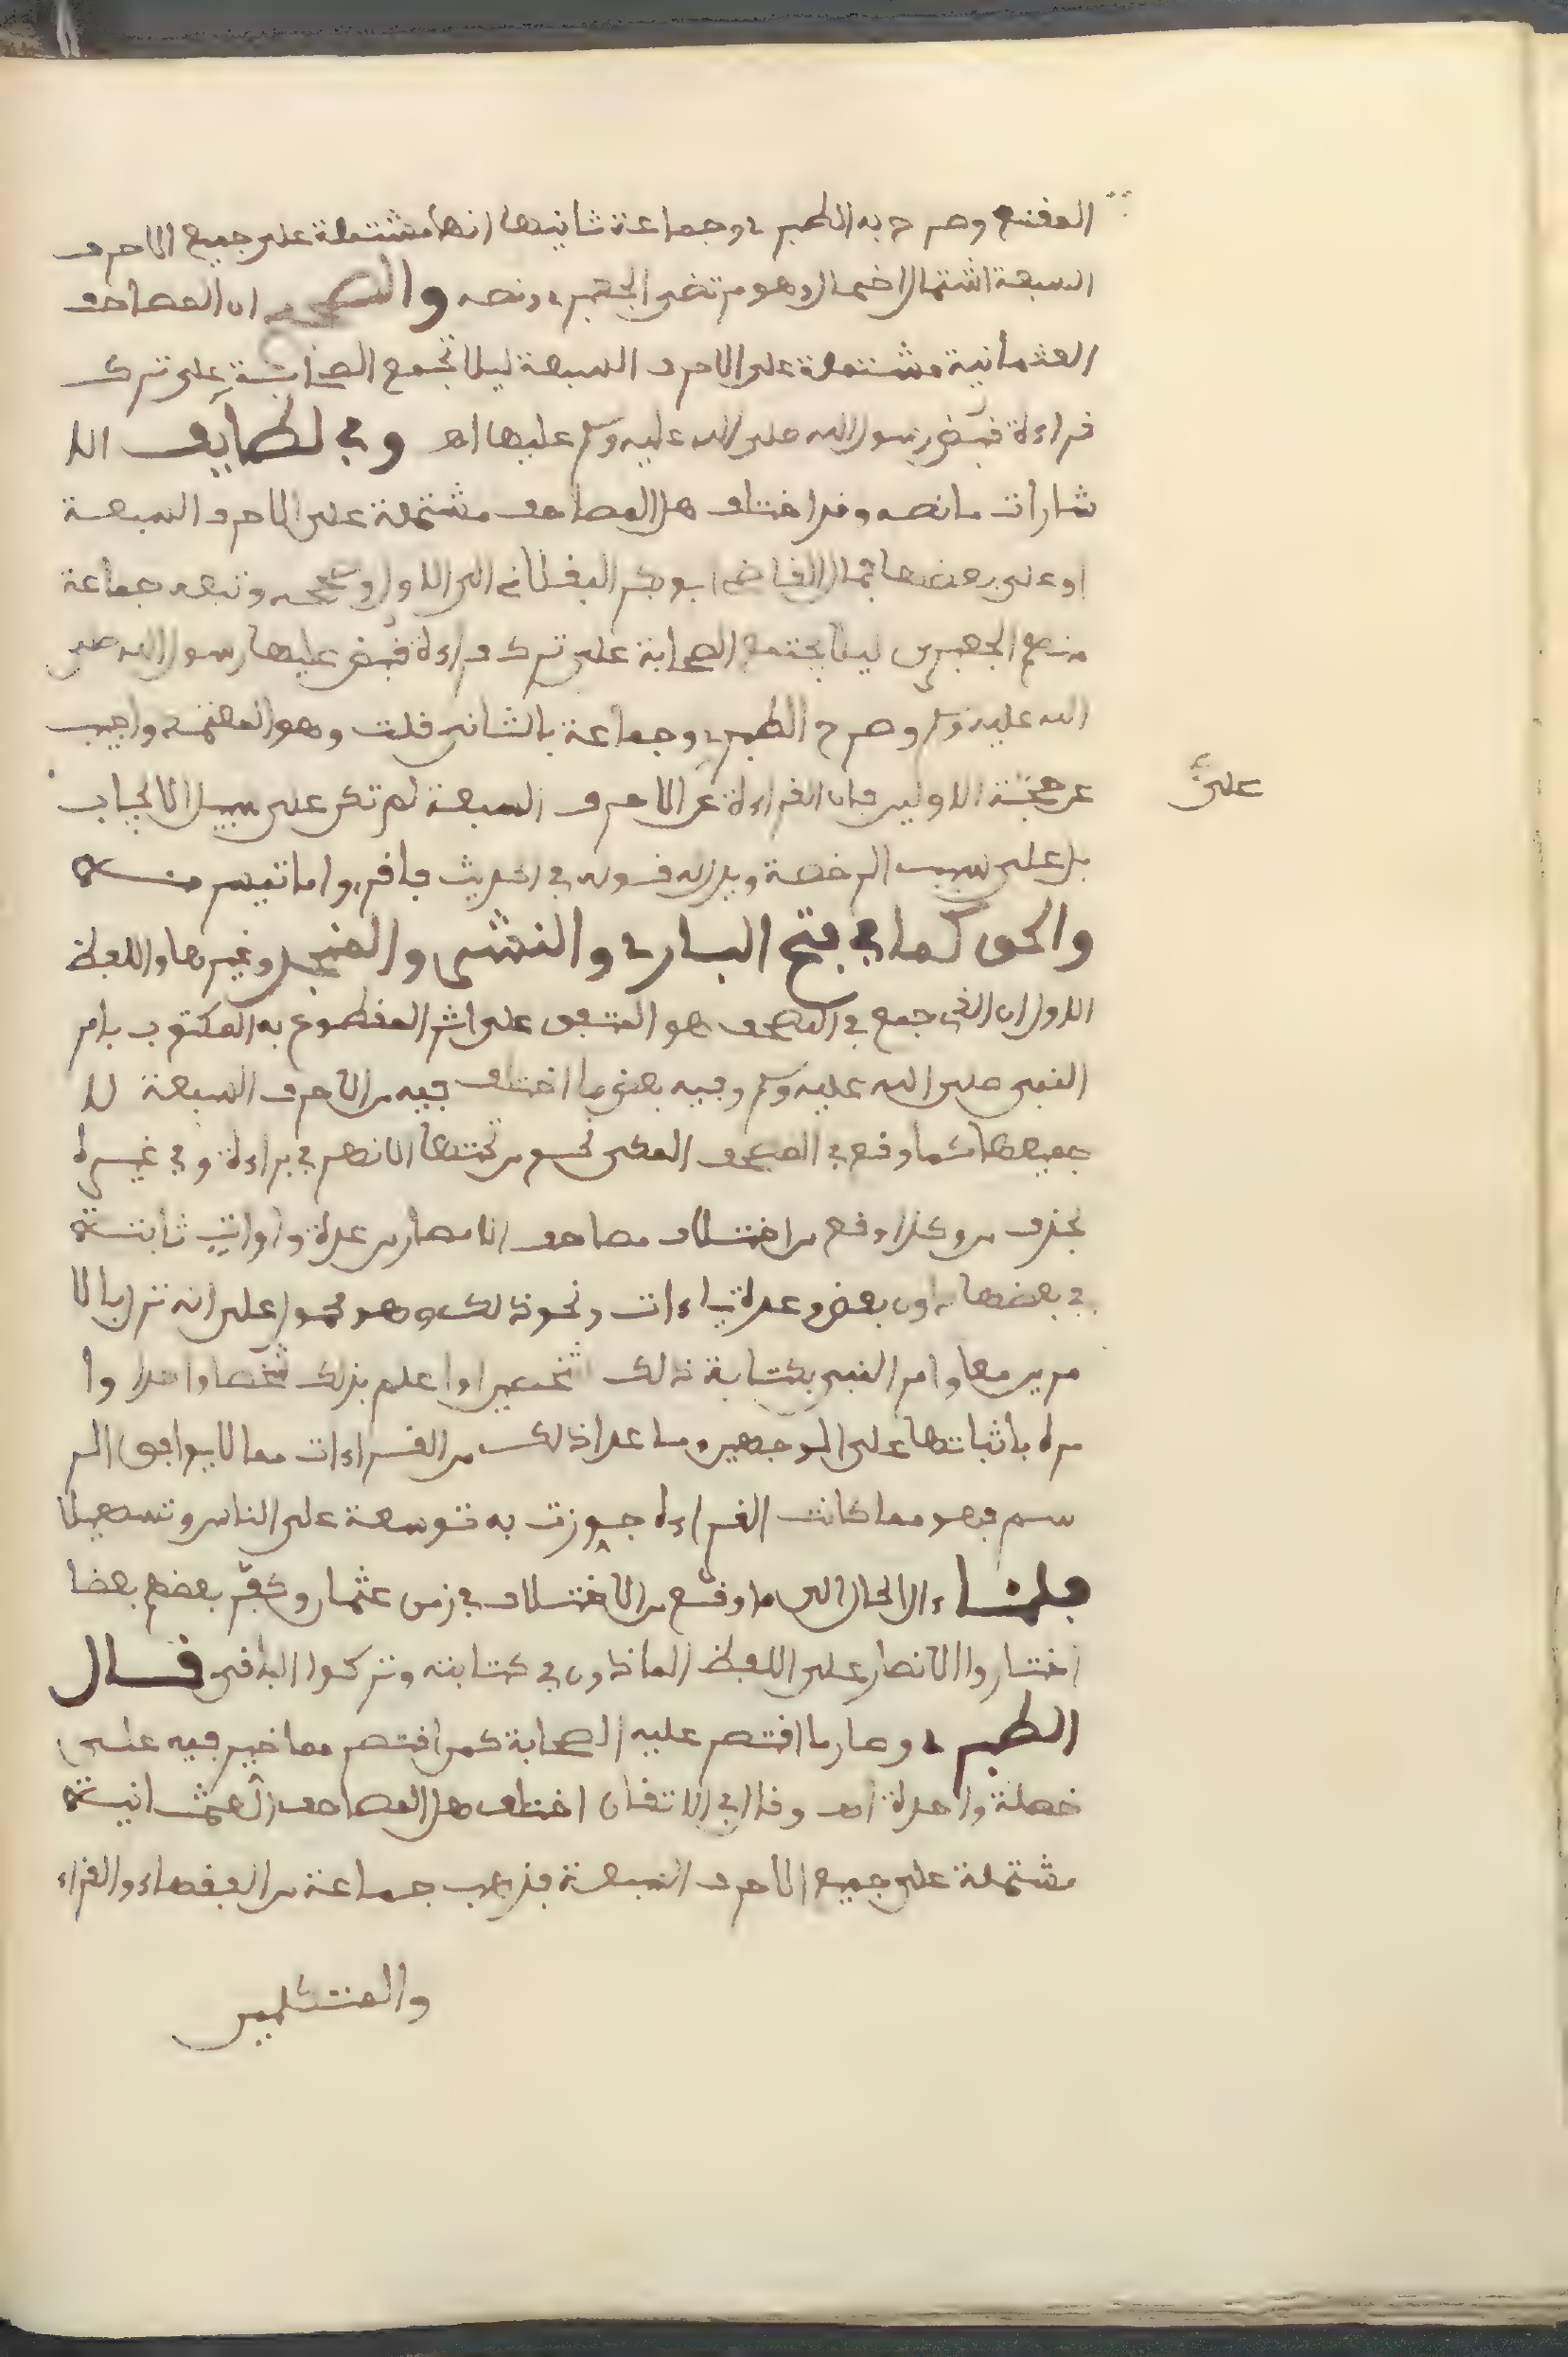 المقنع وصرح به الطبري وجماعة ثانيها انها مشتملة على جميع الاحرف
السبعة اشتمالا احتمالا وهو مرتضى الجعبري ونصه والصحيح ان المصاحف
العثمانية مشتملة على الاحرف السبعة ليلا تجمع الصحابة على ترك
قراءة قبض رسول الله صلى الله عليه وسلم عليها اهـ وفي لطايف الا
شارات ما نصه وقد اختلف هل المصاحف مشتملة على الاحرف السبعة
او على بعضها فمال القاضي ابو بكر الباقلاني الى الاول وصححه وتبعه جماعة
منهم الجعبري ليلا يجتمع الصحابة على ترك قراءة قبض عليها رسول الله صلى
الله عليه وسلم وصرح الطبري وجماعة بالثاني قلت وهو المعتمد واجيب
على
عن حجة الاولين بان القراءة على الاحرف السبعة لم تكن على سبيل الايجاب
بل على سبب الرخصة ويدل له قوله في الحديث فاقرءوا ما تيسر منه
والحق كما في فتح الباري والنشر والمنجد وغيرها واللفظ
للاول ان الذي جمع في المصحف هو المتفق على انزاله المقطوع به المكتوب بامر
النبي صلى الله عليه وسلم وفيه بعض ما اختلف فيه من الاحرف السبعة لا
جميعها كما وقع في المصحف المكي نحو من تحتها الانهر في براءة وفي غيره
بحذف من وكذا وقع من اختلاف مصاحف الامصار من عدة واوات ثابتة
في بعضها دون بعض وعدة ياءات ونحو ذلك وهو محمول على انه نزل بالا
مرين معا وامر النبي بكتابة ذلك شخصين او اعلم بذلك شخصا واحدا وا
مره باثباتها على الوجهين وما عدا ذلك من القراءات مما لا يوافق الر
سم فهو مما كانت القراءة جوزت به توسعة على الناس وتسهيلا
فلما ءال الحال الى ما وقع من الاختلاف في زمن عثمان وكفر بعضهم بعضا
اختاروا الاقتصار على اللفظ الماذون في كتابته وتركوا الباقي قال
الطبري وصار ما اقتصر عليه الصحابة كمن اقتصر مما خير فيه على
خصلة واحدة اهـ وقال في الاتقان اختلف هل المصاحف العثمانية
مشتملة على جميع الاحرف السبعة فذهب جماعة من الفقهاء والقراء
والمتكلمين